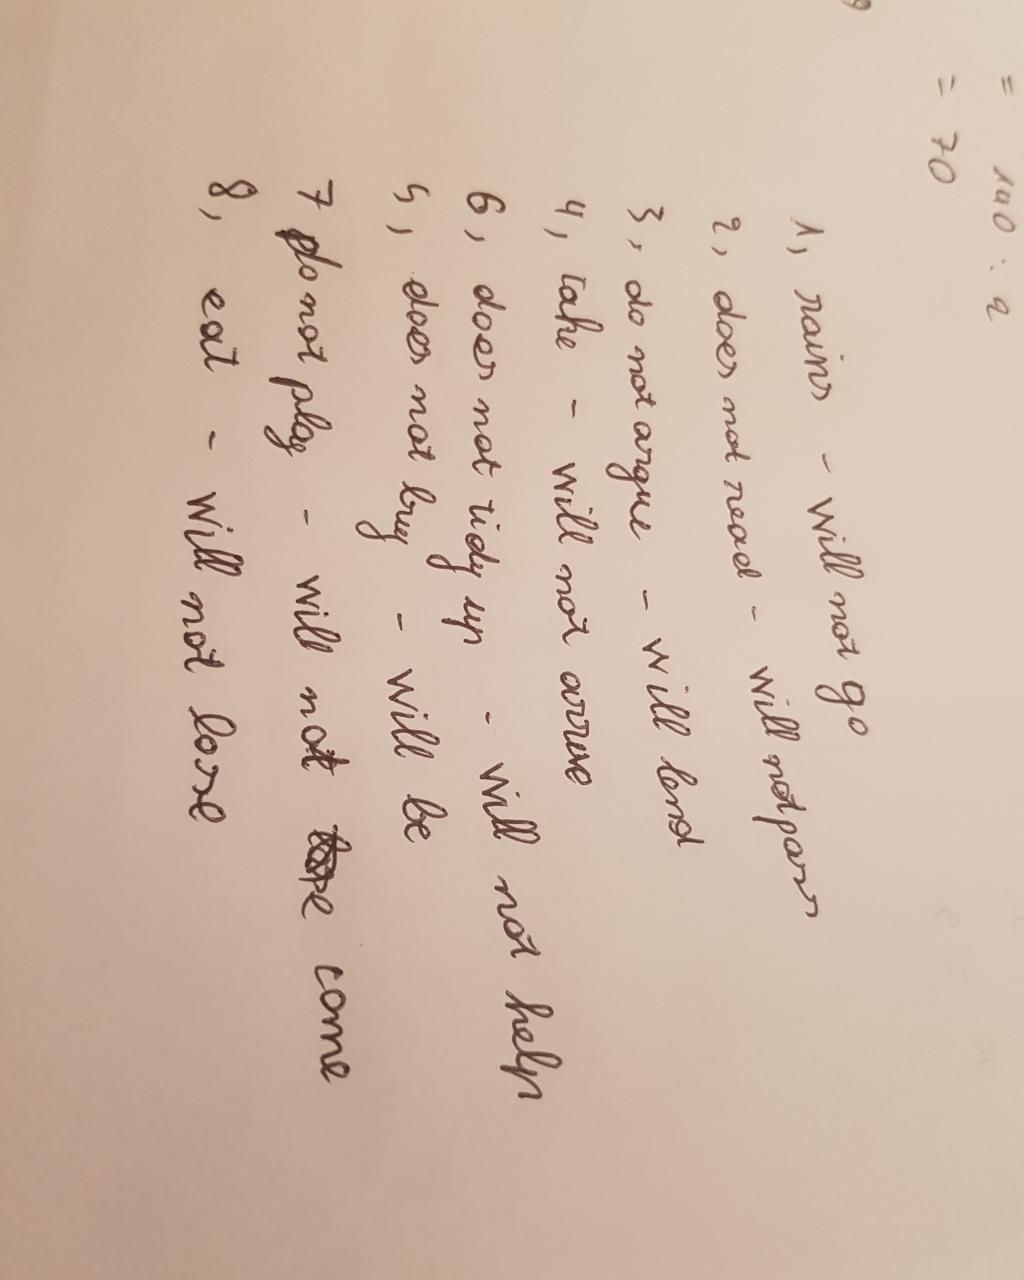 = 140 : 2
= 70
1, rains - will not go
2, does not read - will not pass
3, do not argue - will lend
4, take - will not arrive
6, does not tidy up - will not help
5, does not buy - will be
7 do not play - will not come
8, eat - will not lose